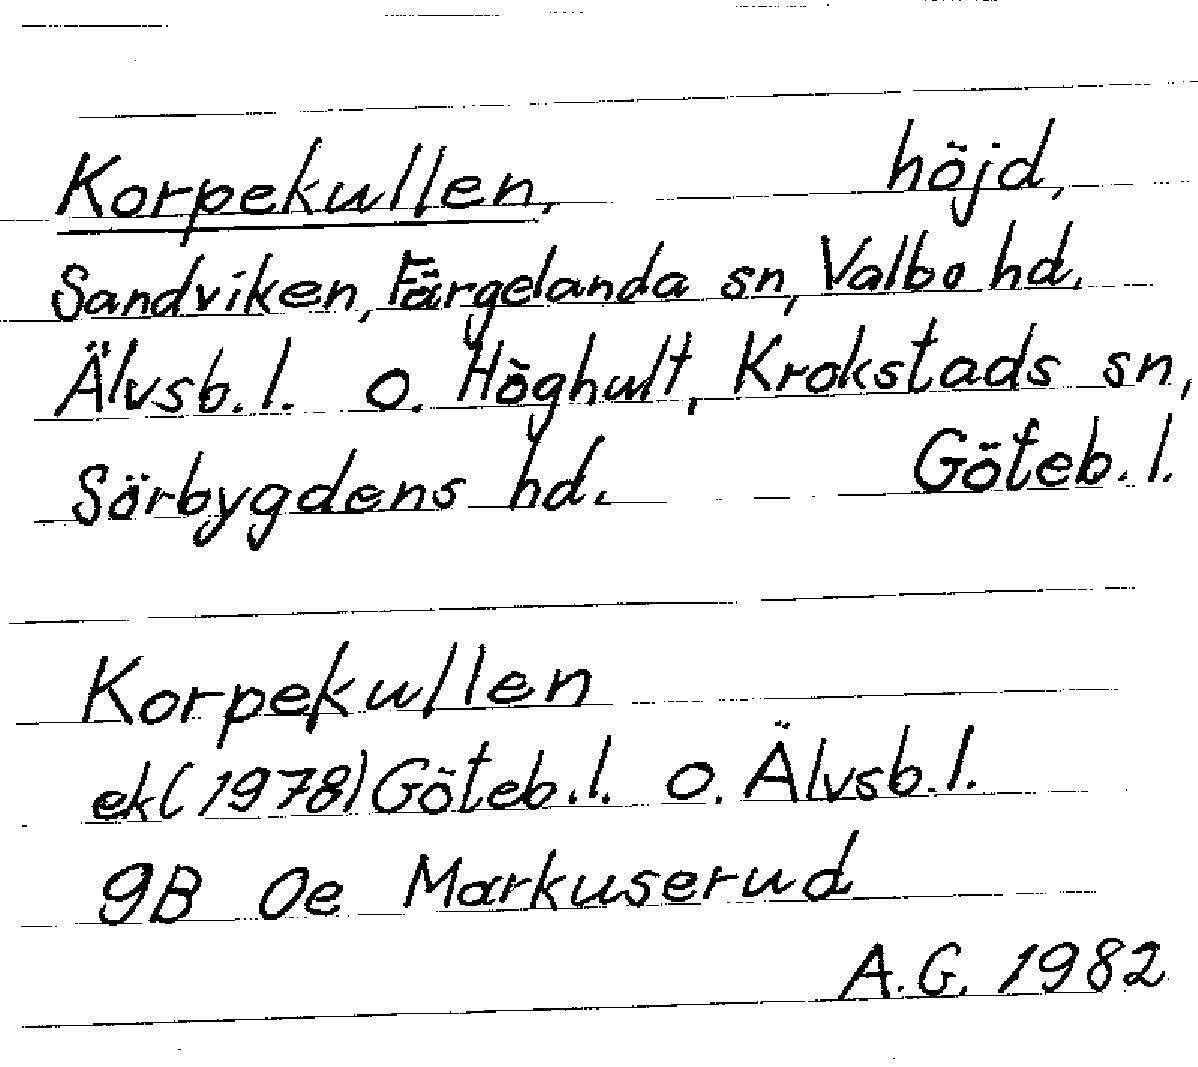 Korpekullen, höjd,
Sandviken, Färgelanda sn, Valbo hd.
Älvsb. l. o. Höghult, Krokstads sn,
Sörbygdens hd. Göteb. l.
Korpekullen
ek (1978) Göteb. l. o. Älvsb. l.
9B 0e Markuserud
A.G. 1982